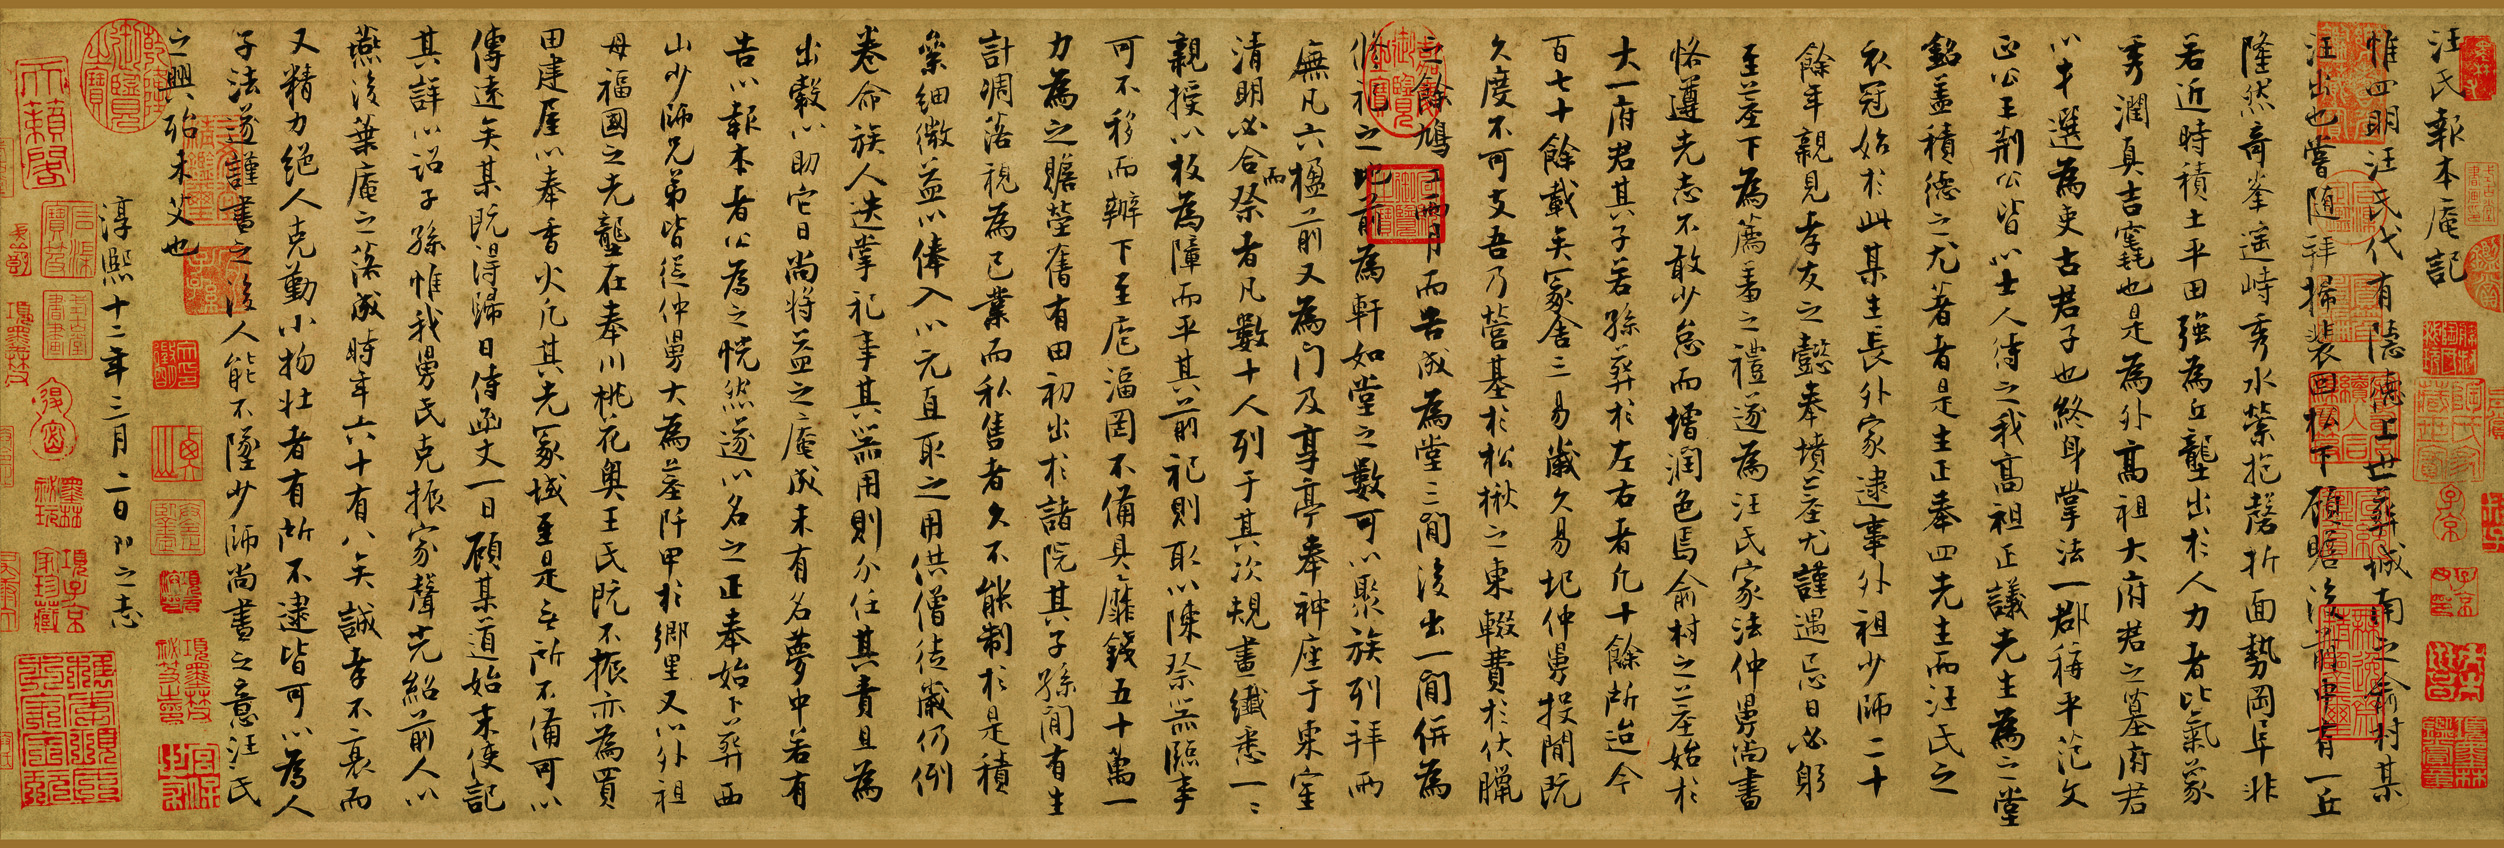 汪氏報本庵記
惟四明汪氏代有隱德上世葬城南之俞村某
汪出也嘗隨拜掃裴回松下顧瞻後前中有一丘
隆然奇峯遥峙秀水縈抱磬折面勢岡阜非
若近時積土平田強為丘壟出於人力者比氣象
秀潤真吉竁也是為外高祖大府君之墓府君
以才選為吏古君子也終身掌法一郡稱平范文
正公王荆公皆以士人待之我高祖正議先生為之堂
銘盖積德之尤著者是生正奉四先生而汪氏之
衣冠始於此某生長外家逮事外祖少師二十
餘年親見孝友之懿奉墳墓尤謹遇忌日必躬
至墓下為薦羞之禮遂為汪氏家法仲舅尚書
恪遵先志不敢少怠而增潤色焉俞村之墓始於
大一府君其子若孫葬於左右者凡十餘所迨今
百七十餘載矣冢舍三易歲久易圮仲舅投閒既
久度不可支吾乃營基於松楸之東輟費於伏臘
之餘鳩工兩月而告成為堂三間後出一間併為
脩祀之地前為軒如堂之數可以聚族列拜而
廡凡六楹前又為門及享亭奉神座于東室
清明必合祭者凡數十人列于其次規畫纖悉一一
親授以板為障而平其前祀則取以陳祭器臨事
可不移而辦下至庖湢罔不備具靡錢五十萬一
力為之贍塋舊有田初出於諸院其子孫間有生
計凋落視為己業而私售者久不能制於是積
絫細微益以俸入以元直取之用供僧徒歲仍例
卷命族人迭掌祀事其器用則分任其責且為
出穀以助它日尚將益之庵成未有名夢中若有
告以報本者公為之怳然遂以名之正奉始卜葬西
山少師兄弟皆從仲舅大為墓阡甲於鄉里又以外祖
母福國之先壟在奉川桃花奥王氏既不振亦為買
田建屋以奉香火凡其先冢域至是無所不備可以
傳遠矣某既得歸日侍函丈一日顧某道始末使記
其詳以詔子孫惟我舅氏克振家聲光紹前人以
燕後葉庵之落成時年六十有八矣誠孝不衰而
又精力絕人克勤小物壯者有所不逮皆可以為人
子法遂謹書之後人能不墜少師尚書之意汪氏
之興殆未艾也
淳熙十二年三月二日即之志